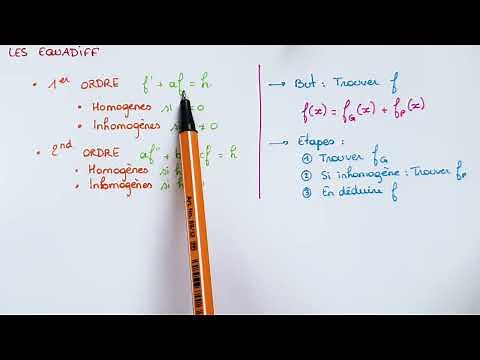 LES EQUADIFF
• 1er ORDRE f' + af = h
• Homogènes si 0
• Inhomogènes s ≠ 0
• 2nd ORDRE af" + b cf = h
• Homogènes si
• Inhomogènes si 0
→ But : Trouver f
f(x) = fG(x) + fP(x)
→ Etapes :
① Trouver fG
② Si inhomogène : Trouver fP
③ En déduire f